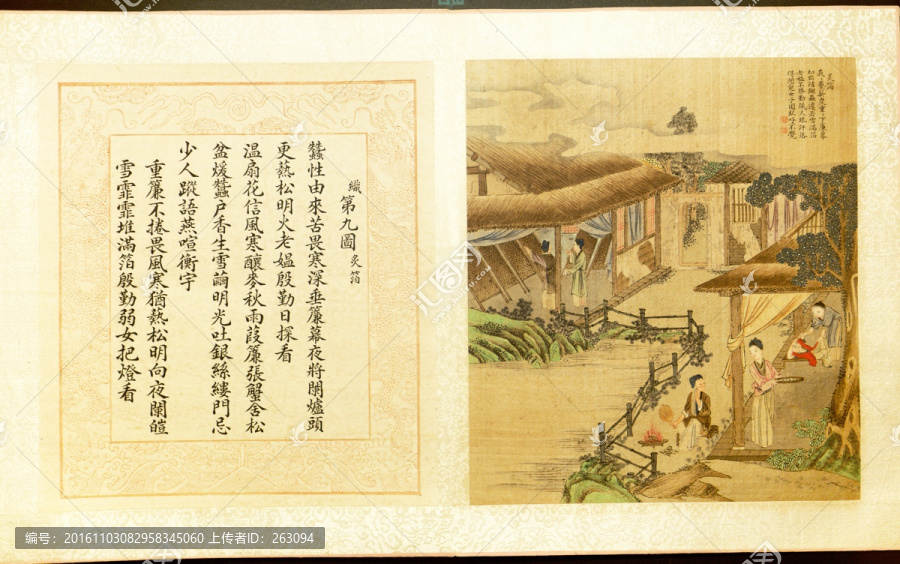 織第九圖炙箔
蠶性由來苦畏寒深垂簾幕夜將闌爐頭
更爇松明火老媪殷勤日探看
溫扇花信風寒釀麥秋雨葭簾張蟹舍松
盆煖蠶戶香生雪繭明光吐銀絲縷門忌
少人蹤語燕喧衡宇
重簾不捲畏風寒猶爇松明向夜闌皚
雪霏霏堆滿箔殷勤弱女把燈看
炙箔
編号：20161103082958345060 上传者ID：263094